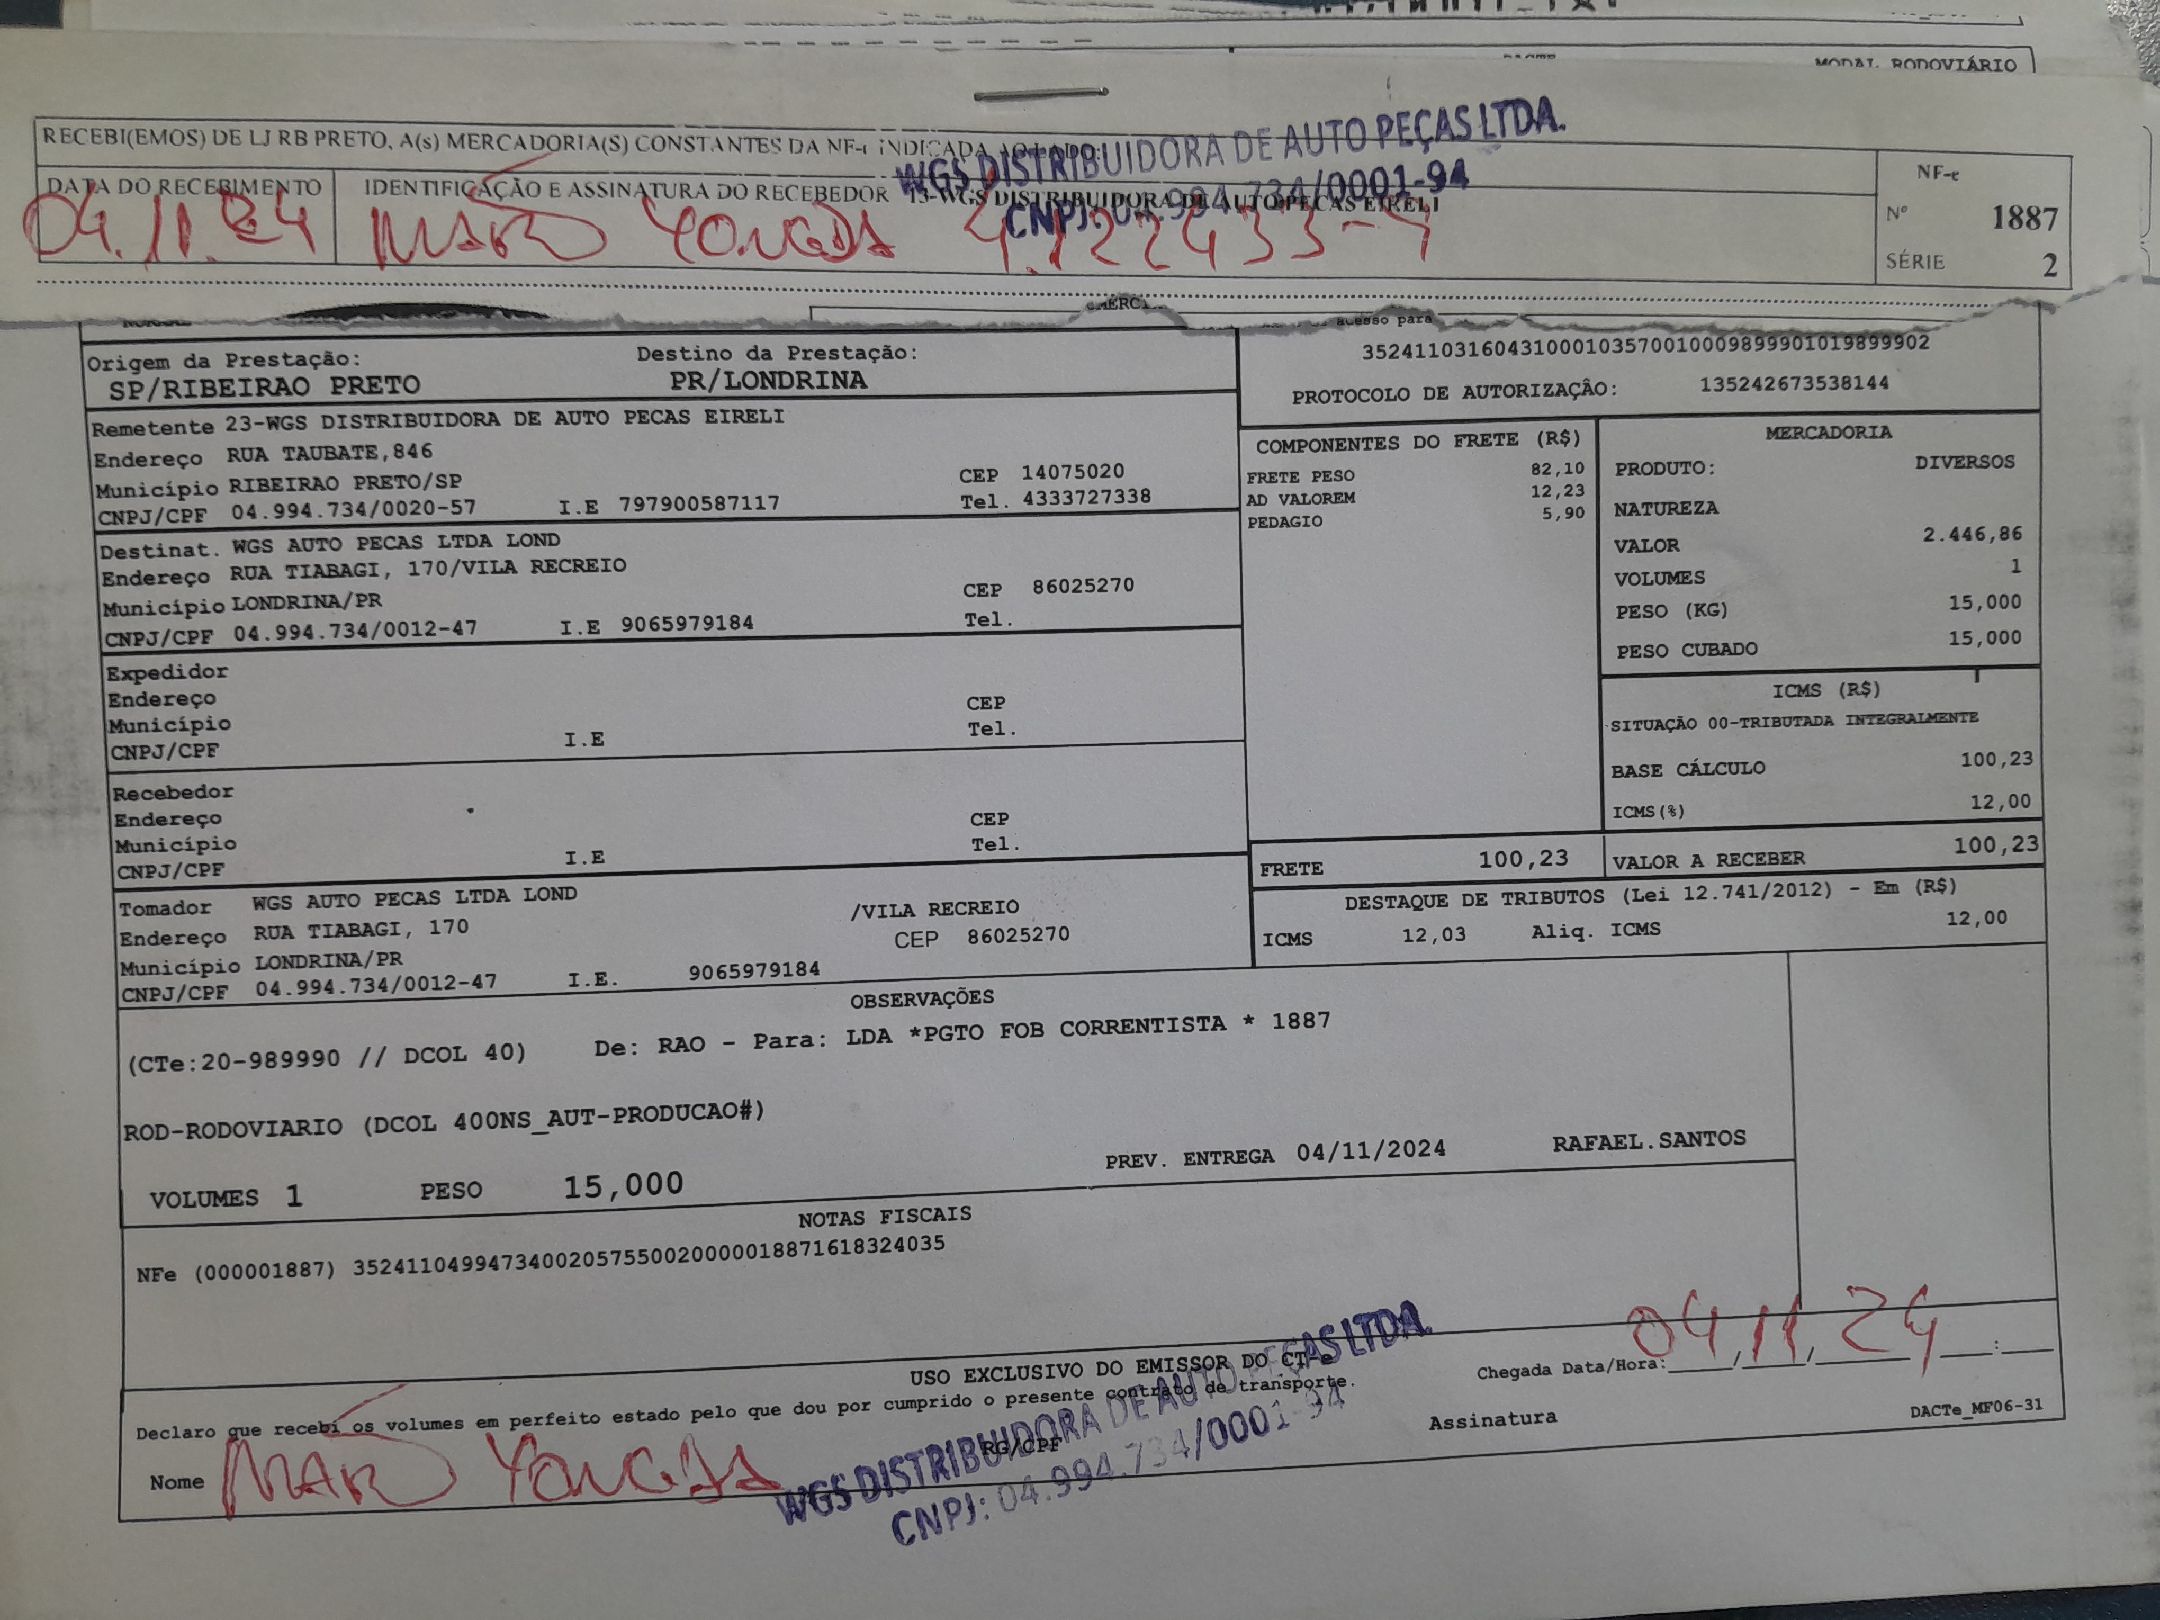 MODAL RODOVIÁRIO
RECEBI(EMOS) DE LJ RB PRETO, A(s) MERCADORIA(S) CONSTANTES DA NF-e INDICADA AO LADO.
WGS DISTRIBUIDORA DE AUTO PEÇAS LTDA.
CNPJ: 04.994.734/0001-94
DATA DO RECEBIMENTO
IDENTIFICAÇÃO E ASSINATURA DO RECEBEDOR 13-WGS DISTRIBUIDORA DE AUTO PECAS EIRELI
NF-e
Nº 1887
SÉRIE 2
04.11.24
acesso para
Origem da Prestação:
SP/RIBEIRAO PRETO
Destino da Prestação:
PR/LONDRINA
35241103160431000103570010009899901019899902
PROTOCOLO DE AUTORIZAÇÂO: 135242673538144
Remetente 23-WGS DISTRIBUIDORA DE AUTO PECAS EIRELI
Endereço RUA TAUBATE,846
Município RIBEIRAO PRETO/SP
CEP 14075020
CNPJ/CPF 04.994.734/0020-57 I.E 797900587117
Tel. 4333727338
Destinat. WGS AUTO PECAS LTDA LOND
Endereço RUA TIABAGI, 170/VILA RECREIO
Município LONDRINA/PR
CEP 86025270
CNPJ/CPF 04.994.734/0012-47 I.E 9065979184
Tel.
Expedidor
Endereço
Município
CEP
CNPJ/CPF I.E
Tel.
Recebedor
Endereço
Município
CEP
CNPJ/CPF I.E
Tel.
Tomador WGS AUTO PECAS LTDA LOND
Endereço RUA TIABAGI, 170 /VILA RECREIO
Município LONDRINA/PR CEP 86025270
CNPJ/CPF 04.994.734/0012-47 I.E. 9065979184
COMPONENTES DO FRETE (R$)
FRETE PESO 82,10
AD VALOREM 12,23
PEDAGIO 5,90
MERCADORIA
PRODUTO: DIVERSOS
NATUREZA
VALOR 2.446,86
VOLUMES 1
PESO (KG) 15,000
PESO CUBADO 15,000
ICMS (R$)
SITUAÇÃO 00-TRIBUTADA INTEGRALMENTE
BASE CÁLCULO 100,23
ICMS(%) 12,00
FRETE 100,23
VALOR A RECEBER 100,23
DESTAQUE DE TRIBUTOS (Lei 12.741/2012) - Em (R$)
ICMS 12,03 Aliq. ICMS 12,00
OBSERVAÇÕES
(CTe:20-989990 // DCOL 40) De: RAO - Para: LDA *PGTO FOB CORRENTISTA * 1887
ROD-RODOVIARIO (DCOL 400NS_AUT-PRODUCAO#)
PREV. ENTREGA 04/11/2024 RAFAEL.SANTOS
VOLUMES 1 PESO 15,000
NOTAS FISCAIS
NFe (000001887) 35241104994734002057550020000018871618324035
USO EXCLUSIVO DO EMISSOR DO CT-e
Declaro que recebi os volumes em perfeito estado pelo que dou por cumprido o presente contrato de transporte.
Chegada Data/Hora: 04,11,24
Nome
RG/CPF
Assinatura
DACTe_MF06-31
WGS DISTRIBUIDORA DE AUTO PEÇAS LTDA.
CNPJ: 04.994.734/0001-94